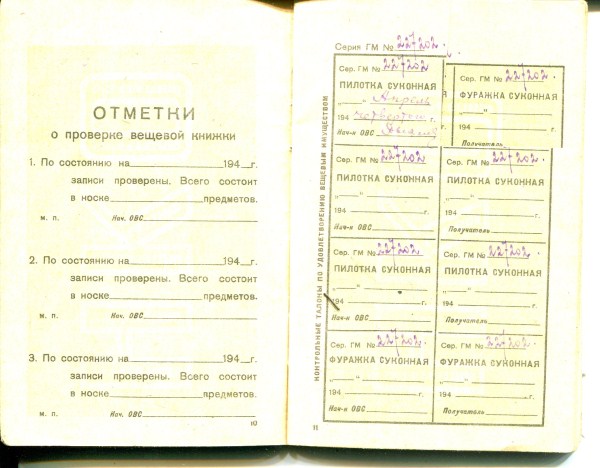 ОТМЕТКИ
о проверке вещевой книжки
1. По состоянию на 194 г.
записи проверены. Всего состоит
в носке предметов.
м. п. Нач. ОВС
2. По состоянию на 194 г.
записи проверены. Всего состоит
в носке предметов.
м. п. Нач. ОВС
3. По состоянию на 194 г.
записи проверены. Всего состоит
в носке предметов.
м. п. Нач. ОВС
10
КОНТРОЛЬНЫЕ ТАЛОНЫ ПО УДОВЛЕТВОРЕНИЮ ВЕЩЕВЫМ ИМУЩЕСТВОМ
Серия ГМ № 227202
Сер. ГМ № 227202
ПИЛОТКА СУКОННАЯ
„ “ Апрель
194 г.
Нач-к ОВС
Сер. ГМ № 227202
ФУРАЖКА СУКОННАЯ
„ “
194 г.
Получатель
Сер. ГМ № 227202
ПИЛОТКА СУКОННАЯ
„ “
194 г.
Нач-к ОВС
Сер. ГМ № 227202
ПИЛОТКА СУКОННАЯ
„ “
194 г.
Получатель
Сер. ГМ № 227202
ПИЛОТКА СУКОННАЯ
„ “
194 г.
Нач-к ОВС
Сер. ГМ № 227202
ПИЛОТКА СУКОННАЯ
„ “
194 г.
Получатель
Сер. ГМ № 227202
ФУРАЖКА СУКОННАЯ
„ “
194 г.
Нач-к ОВС
Сер. ГМ № 227202
ФУРАЖКА СУКОННАЯ
„ “
194 г.
Получатель
11